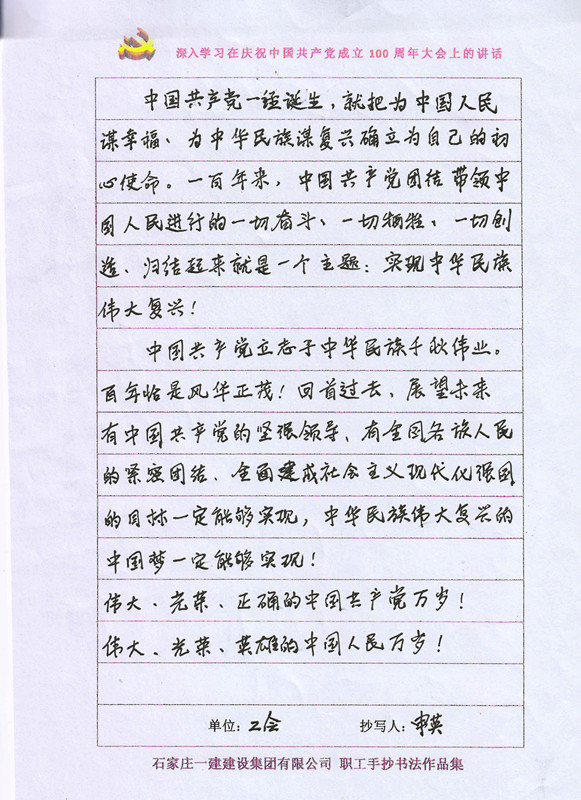 深入学习在庆祝中国共产党成立 100 周年大会上的讲话
中国共产党一经诞生，就把为中国人民
谋幸福、为中华民族谋复兴确立为自己的初
心使命。一百年来，中国共产党团结带领中
国人民进行的一切奋斗、一切牺牲、一切创
造、归结起来就是一个主题：实现中华民族
伟大复兴！
中国共产党立志于中华民族千秋伟业。
百年恰是风华正茂！回首过去、展望未来
有中国共产党的坚强领导、有全国各族人民
的紧密团结、全面建成社会主义现代化强国
的目标一定能够实现，中华民族伟大复兴的
中国梦一定能够实现！
伟大、光荣、正确的中国共产党万岁！
伟大、光荣、英雄的中国人民万岁！
单位：工会 抄写人：申英
石家庄一建建设集团有限公司 职工手抄书法作品集